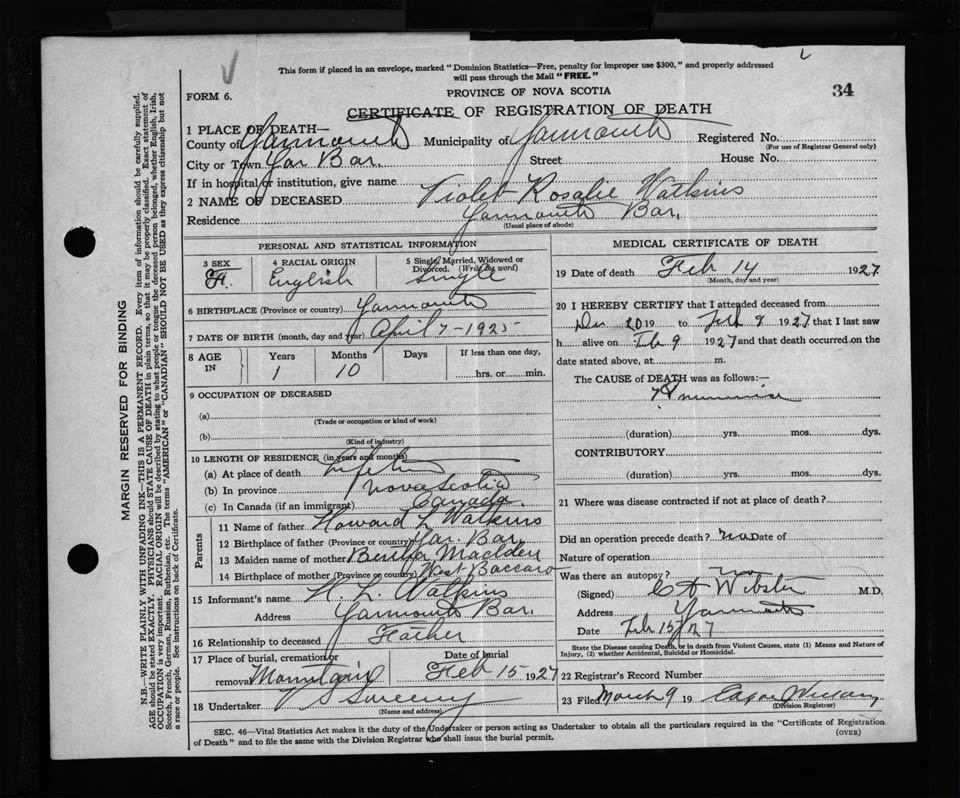 This form if placed in an envelope, marked "Dominion Statistics—Free, penalty for improper use $300," and properly addressed
will pass through the Mail "FREE."
34
FORM 6.
PROVINCE OF NOVA SCOTIA
CERTIFICATE OF REGISTRATION OF DEATH
1 PLACE OF DEATH—
County of Yarmouth Municipality of Yarmouth Registered No.
(For use of Registrar General only)
City or Town Yar Bar. Street House No.
If in hospital or institution, give name
2 NAME OF DECEASED Violet Rosalie Watkins
Residence Yarmouth Bar,
(Usual place of abode)
PERSONAL AND STATISTICAL INFORMATION
3 SEX 4 RACIAL ORIGIN 5 Single, Married, Widowed or Divorced. (Write the word)
F. English Single
6 BIRTHPLACE (Province or country) Yarmouth
7 DATE OF BIRTH (month, day and year) April 7-1925
8 AGE IN Years Months Days If less than one day,
1 10 hrs. or min.
9 OCCUPATION OF DECEASED
(a)
(Trade or occupation or kind of work)
(b)
(Kind of industry)
10 LENGTH OF RESIDENCE (in years and months)
(a) At place of death Lifetime
(b) In province Nova Scotia
(c) In Canada (if an immigrant) Canada.
Parents
11 Name of father Howard L Watkins
12 Birthplace of father (Province or country) Yar. Bar
13 Maiden name of mother Bertha
14 Birthplace of mother (Province or country) West Baccaro
15 Informant's name H. L. Watkins
Address Yarmouth Bar.
16 Relationship to deceased Father
17 Place of burial, cremation or removal Date of burial
Feb 15 1927
18 Undertaker V S Sweeny
(Name and address)
MEDICAL CERTIFICATE OF DEATH
19 Date of death Feb 14 1927
(Month, day and year)
20 I HEREBY CERTIFY that I attended deceased from
20 19 to Feb 9 1927 that I last saw
h alive on Feb 9 1927 and that death occurred on the
date stated above, at m.
The CAUSE of DEATH was as follows:—
Pneumonia
(duration) yrs. mos. dys.
CONTRIBUTORY
(duration) yrs. mos. dys.
21 Where was disease contracted if not at place of death?
Did an operation precede death? no Date of
Nature of operation
Was there an autopsy? no
(Signed) Webster M.D.
Address Yarmouth
Date Feb 15/27
State the Disease causing Death, or in death from Violent Causes, state (1) Means and Nature of
Injury, (2) whether Accidental, Suicidal or Homicidal.
22 Registrar's Record Number
23 Filed March 9 19
(Division Registrar)
SEC. 46—Vital Statistics Act makes it the duty of the Undertaker or person acting as Undertaker to obtain all the particulars required in the "Certificate of Registration
of Death" and to file the same with the Division Registrar who shall issue the burial permit.
(OVER)
MARGIN RESERVED FOR BINDING
N.B.—WRITE PLAINLY WITH UNFADING INK—THIS IS A PERMANENT RECORD. Every item of information should be carefully supplied.
AGE should be stated EXACTLY. PHYSICIANS should STATE CAUSE OF DEATH in plain terms, so that it may be properly classified. Exact statement of
OCCUPATION is very important. RACIAL ORIGIN will be described by stating to what people or tongue the deceased person belonged, whether English, Irish,
Scotch, French, German, Russian, Ruthenian, etc. The terms "AMERICAN" or "CANADIAN" SHOULD NOT BE USED as they express citizenship but not
a race or people. See instructions on back of Certificate.